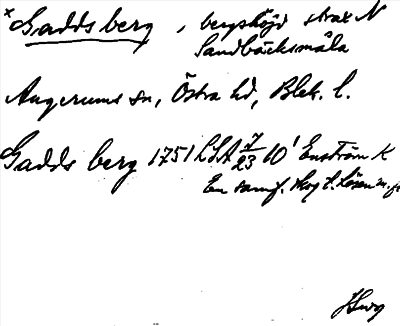 × Gaddsberg, bergshöjd strax N
Sandbäcksmåla
Augerums sn, Östra hd, Blek. l.
Gadds berg 1751 LSA 7/23 10' Enström K
En samf. skog t. Lösen m. fl